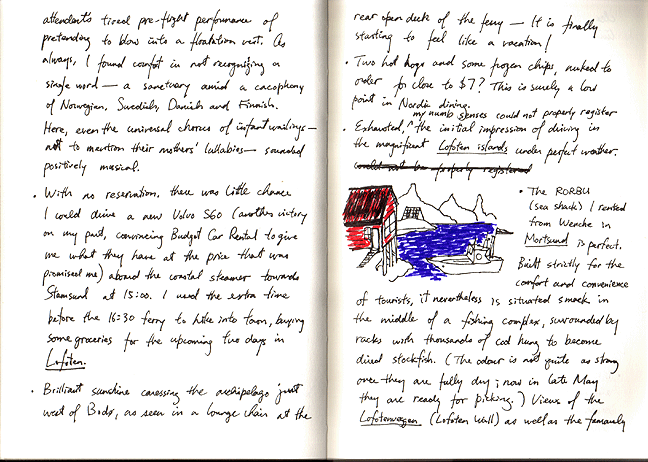 attendant's tired pre-flight performance of
pretending to blow into a floatation vest. As
always, I found comfort in not recognizing a
single word — a sanctuary amid a cacophony
of Norwegian, Swedish, Danish and Finnish.
Here, even the universal chorus of infant wailings —
not to mention their mothers' lullabies — sounded
positively musical.
• With no reservation, there was little chance
I could drive a new Volvo S60 (another victory
on my part, convincing Budget Car Rental to give
me what they have at the price that was
promised me) aboard the coastal steamer towards
Stamsund at 15:00. I used the extra time
before the 16:30 ferry to hike into town, buying
some groceries for the upcoming two days in
Lofoten.
• Brilliant sunshine caressing the archipelago just
west of Bodo, as seen in a lounge chair at the
rear open deck of the ferry — It is finally
starting to feel like a vacation!
• Two hot dogs and some frozen chips, nuked to
order for close to $7? This is surely a low
point in Nordic dining.
my numb senses could not properly register
• Exhausted, ^ the initial impression of driving in
the magnificent Lofoten islands under perfect weather.
could not be properly registered
• The RORBU
(sea shack) I rented
from Wenche in
Mortsund is perfect.
Built strictly for the
comfort and convenience
of tourists, it nevertheless is situated smack in
the middle of a fishing complex, surrounded by
racks with thousands of cod hung to become
dried stockfish. (The odour is not quite as strong
once they are fully dry; now in late May
they are ready for picking.) Views of the
Lofotenvegen (Lofoten Wall) as well as the famously